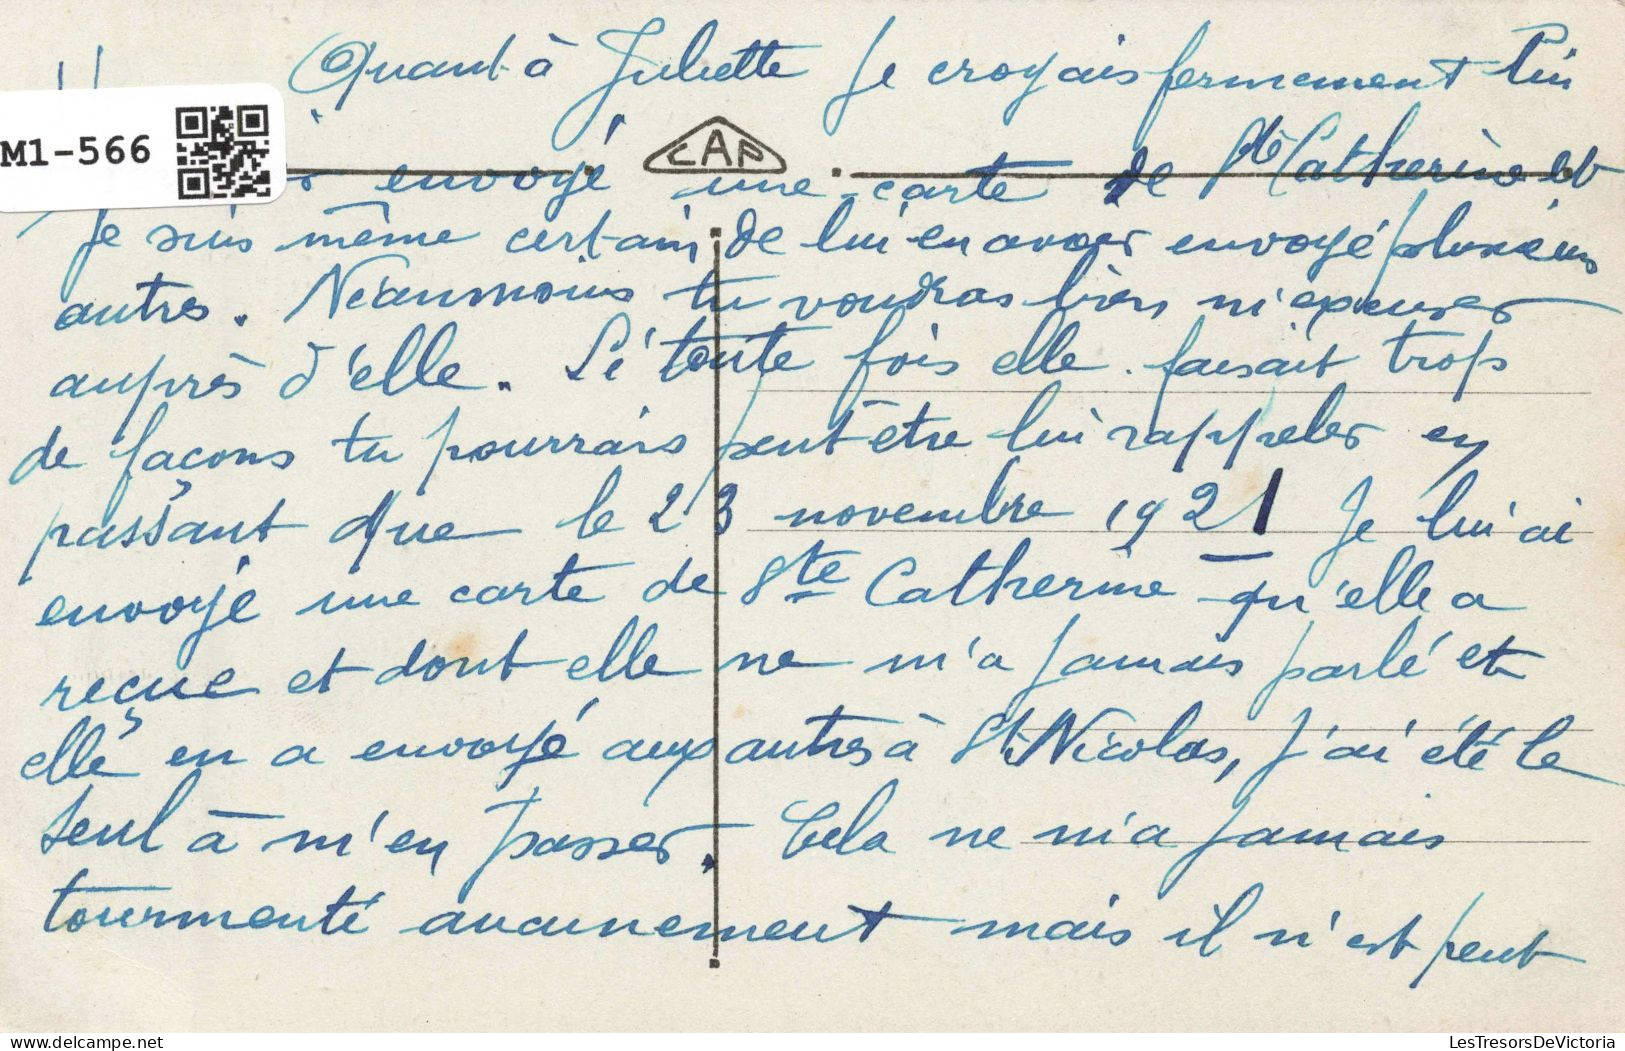 Quant à Juliette je croyais fermement lui
M1-566
CAP
envoyé une carte de Ste Catherine et
je suis même certain de lui en avoir envoyé plusieurs
autres. Néanmoins tu voudras bien m'excuser
auprès d'elle. Si toute fois elle faisait trop
de façons tu pourrais peut-être lui rappeler en
passant que le 23 novembre 1921 je lui ai
envoyé une carte de Ste Catherine qu'elle a
reçue et dont elle ne m'a jamais parlé et
elle en a envoyé aux autres à St Nicolas, j'ai été le
seul à m'en passer. Cela ne m'a jamais
tourmenté aucunement mais il n'est peut
LesTresorsDeVictoria